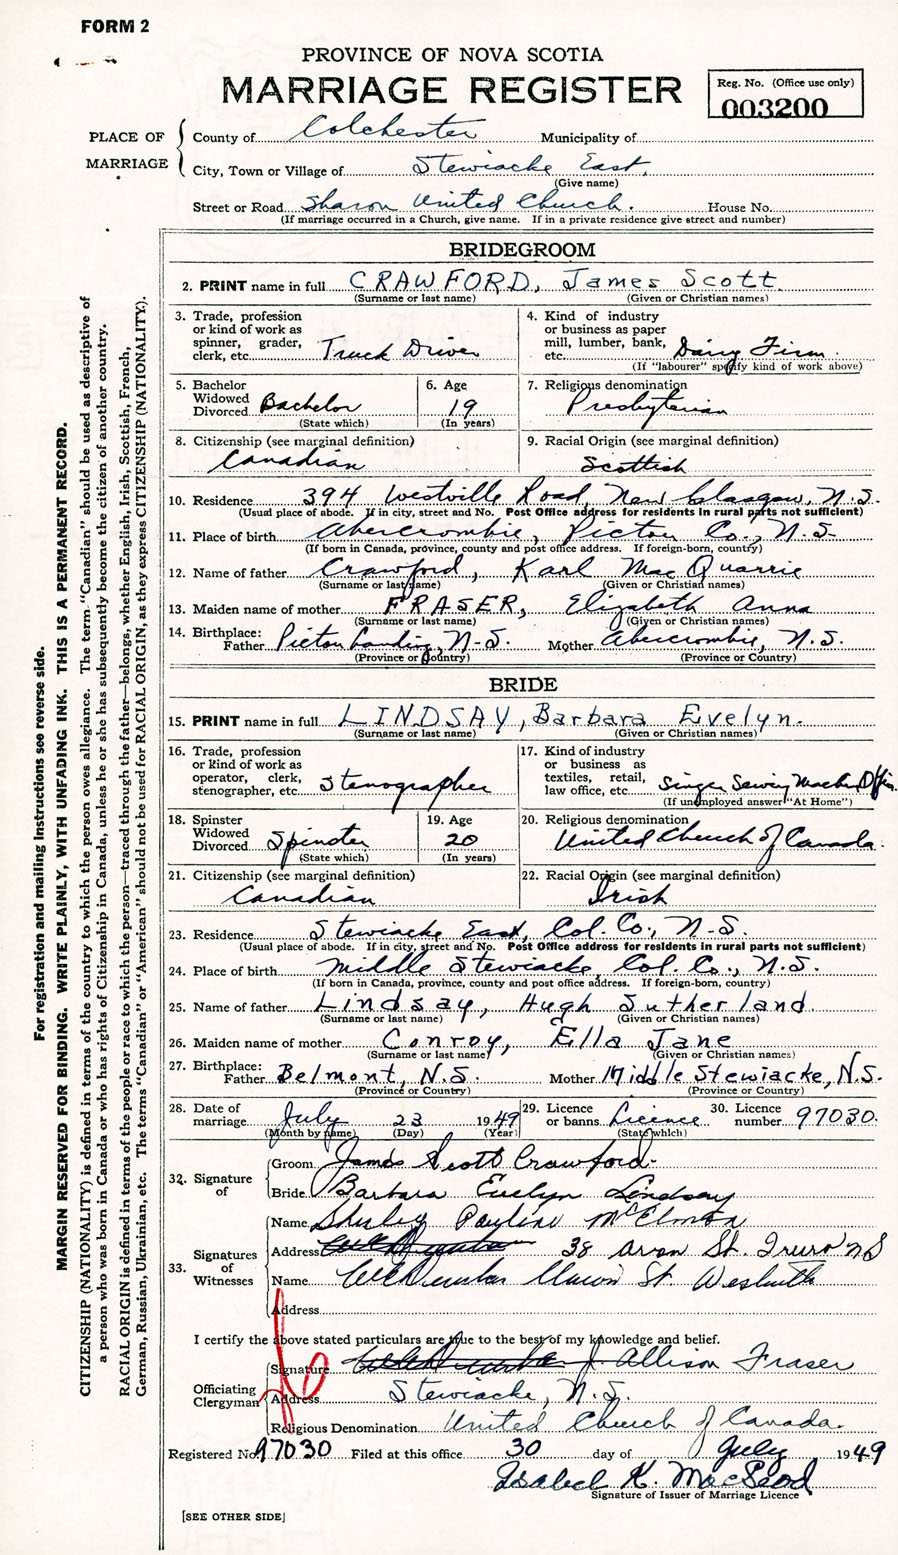 FORM 2
PROVINCE OF NOVA SCOTIA
MARRIAGE REGISTER
Reg. No. (Office use only)
003200
PLACE OF MARRIAGE
County of Colchester Municipality of
City, Town or Village of Stewiacke East,
(Give name)
Street or Road Sharon United Church. House No.
(If marriage occurred in a Church, give name. If in a private residence give street and number)
BRIDEGROOM
2. PRINT name in full CRAWFORD, James Scott
(Surname or last name) (Given or Christian names)
3. Trade, profession or kind of work as spinner, grader, clerk, etc. Truck Driver
4. Kind of industry or business as paper mill, lumber, bank, etc. Dairy Firm.
(If "labourer" specify kind of work above)
5. Bachelor Widowed Divorced Bachelor
(State which)
6. Age 19
(In years)
7. Religious denomination
Presbyterian
8. Citizenship (see marginal definition)
Canadian
9. Racial Origin (see marginal definition)
Scottish
10. Residence 394 Westville Road, New Glasgow, N.S.
(Usual place of abode. If in city, street and No. Post Office address for residents in rural parts not sufficient)
11. Place of birth Abercrombie, Pictou Co., N.S.
(If born in Canada, province, county and post office address. If foreign-born, country)
12. Name of father Crawford, Karl MacQuarrie
(Surname or last name) (Given or Christian names)
13. Maiden name of mother FRASER, Elizabeth Anna
(Surname or last name) (Given or Christian names)
14. Birthplace: Father Pictou Landing, N.S. Mother Abercrombie, N.S.
(Province or Country) (Province or Country)
BRIDE
15. PRINT name in full LINDSAY, Barbara Evelyn.
(Surname or last name) (Given or Christian names)
16. Trade, profession or kind of work as operator, clerk, stenographer, etc. Stenographer
17. Kind of industry or business as textiles, retail, law office, etc. Singer Sewing Machine Office.
(If unemployed answer "At Home")
18. Spinster Widowed Divorced Spinster
(State which)
19. Age 20
(In years)
20. Religious denomination
United Church of Canada.
21. Citizenship (see marginal definition)
Canadian
22. Racial Origin (see marginal definition)
Irish
23. Residence Stewiacke East, Col. Co., N.S.
(Usual place of abode. If in city, street and No. Post Office address for residents in rural parts not sufficient)
24. Place of birth Middle Stewiacke, Col. Co., N.S.
(If born in Canada, province, county and post office address. If foreign-born, country)
25. Name of father Lindsay, Hugh Sutherland.
(Surname or last name) (Given or Christian names)
26. Maiden name of mother Conroy, Ella Jane
(Surname or last name) (Given or Christian names)
27. Birthplace: Father Belmont, N.S. Mother Middle Stewiacke, N.S.
(Province or Country) (Province or Country)
28. Date of marriage July 23 1949
(Month by name) (Day) (Year)
29. Licence or banns Licence
(State which)
30. Licence number 97030.
32. Signature of
Groom James Scott Crawford.
Bride Barbara Evelyn Lindsay
33. Signatures of Witnesses
Name Shirley Pauline McElmon
Address 38 Avon St. Truro NS
Name Union St.
Address
I certify the above stated particulars are true to the best of my knowledge and belief.
Officiating Clergyman
Signature J. Allison Fraser
Address Stewiacke, N.S.
Religious Denomination United Church of Canada.
Registered No. 97030 Filed at this office 30 day of July 1949
Isabel K. MacLeod
Signature of Issuer of Marriage Licence
[SEE OTHER SIDE]
For registration and mailing instructions see reverse side.
MARGIN RESERVED FOR BINDING. WRITE PLAINLY, WITH UNFADING INK. THIS IS A PERMANENT RECORD.
CITIZENSHIP (NATIONALITY) is defined in terms of the country to which the person owes allegiance. The term "Canadian" should be used as descriptive of
a person who was born in Canada or who has rights of Citizenship in Canada, unless he or she has subsequently become the citizen of another country.
RACIAL ORIGIN is defined in terms of the people or race to which the person—traced through the father—belongs, whether English, Irish, Scottish, French,
German, Russian, Ukrainian, etc. The terms "Canadian" or "American" should not be used for RACIAL ORIGIN, as they express CITIZENSHIP (NATIONALITY).